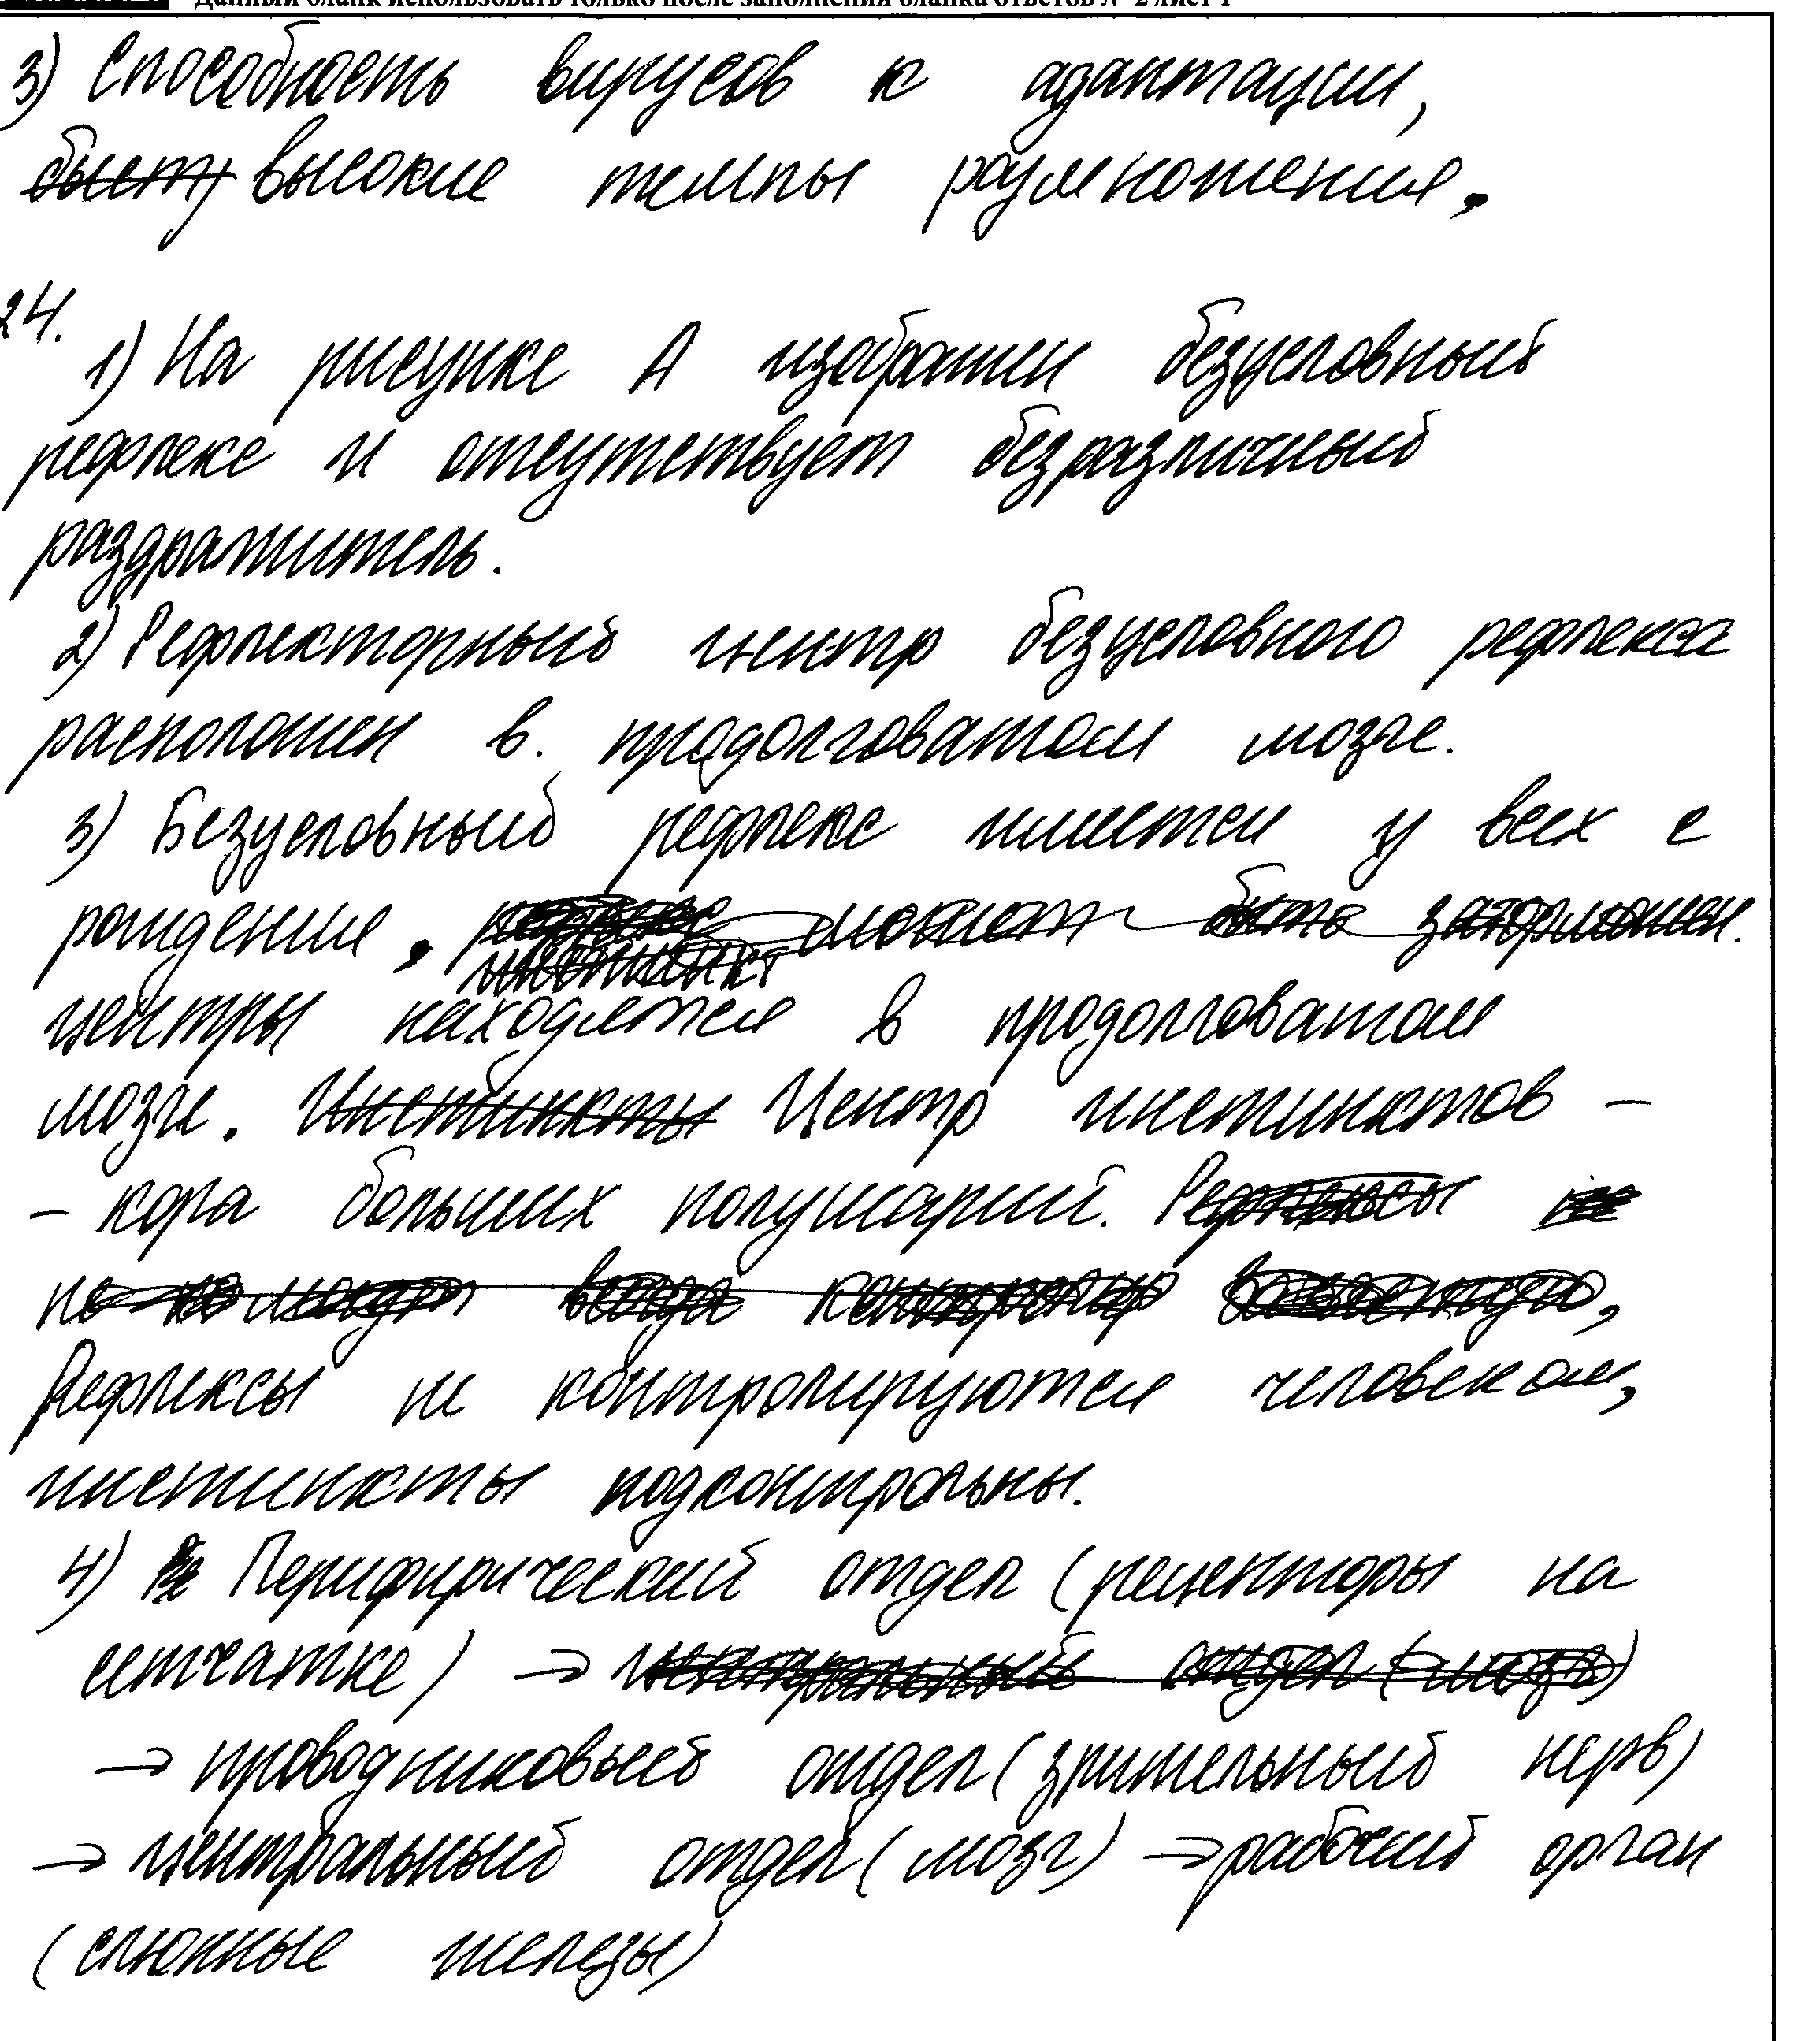 Данный бланк использовать только после заполнения бланка ответов № 2 лист 1
3) Способность вирусов к адаптации,
быст, высокие темпы размножения.
24.
1) На рисунке А изображен безусловный
рефлекс и отсутствует безразличный
раздражитель.
2) Рефлекторный центр безусловного рефлекса
расположен в. продолговатом мозге.
3) Безусловный рефлекс имеется у всех с
рождения, может быть заторможен.
инстинкт
центры находятся в продолговатом
мозге. Инстинкты Центр инстинктов –
– кора больших полушарий. Рефлексы не
Рефлексы не контролируются человеком,
инстинкты подконтрольны.
4) Перифирический отдел (рецепторы на
сетчатке) → центральный отдел (мозг)
→ проводниковый отдел (зрительный нерв)
→ центральный отдел (мозг) → рабочий орган
(слюнные железы)